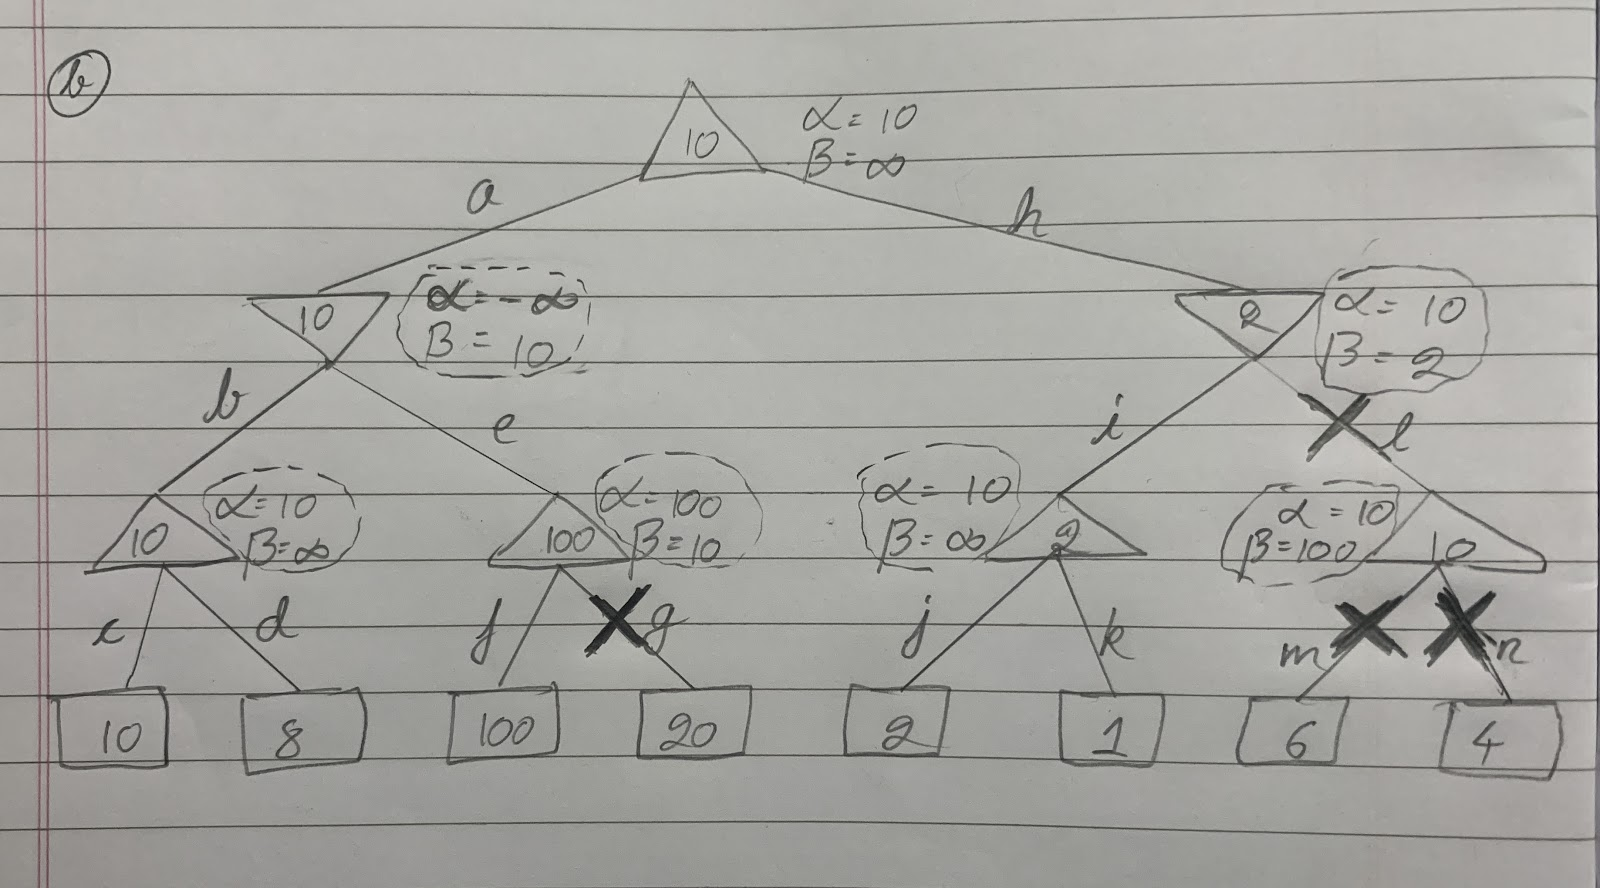 b
10
α = 10
β = ∞
a
h
10
α = - ∞
β = 10
2
α = 10
β = 2
b
e
i
l
10
α = 10
β = ∞
100
α = 100
β = 10
α = 10
β = ∞
2
α = 10
β = 100
10
c
d
f
g
j
k
m
n
10
8
100
20
2
1
6
4